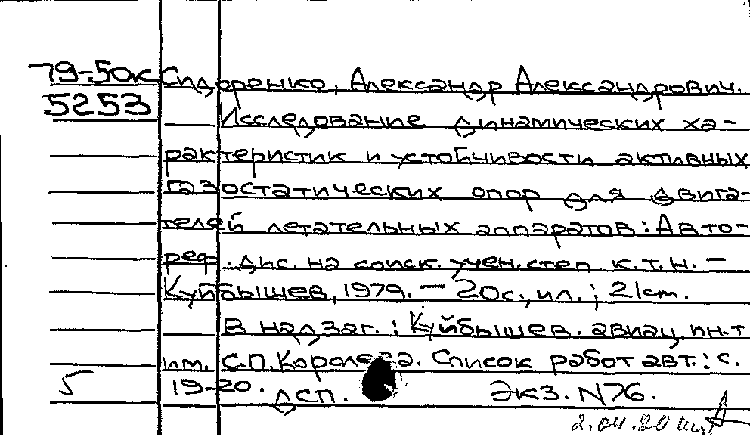 79-50к Сидоренко, Александр Александрович.
5253 Исследование динамических ха-
рактеристик и устойчивости активных
газостатических опор для двига-
телей летательных аппаратов: Авто-
реф. дис. на соиск. учен. степ к.т.н. -
Куйбышев, 1979. - 20с., ил.; 21см.
В надзаг.: Куйбышев. авиац. ин.т
им. С.П. Королева. Список работ авт.: с.
5 19-20. ДСП. Экз. N76.